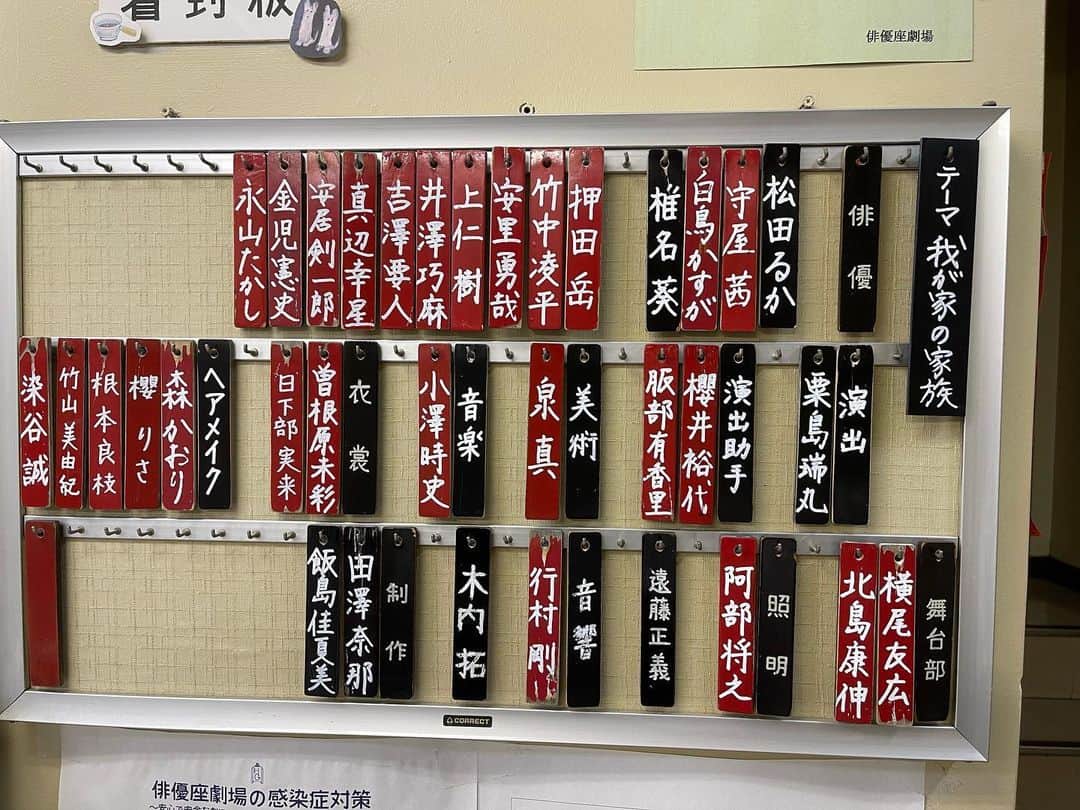 着到板
俳優座劇場
テーマ 我が家の家族
俳優
松田るか
守屋茜
白鳥かすが
椎名葵
押田岳
竹中凌平
安里勇哉
上仁樹
井澤巧麻
吉澤要人
真辺幸星
安居剣一郎
金児憲史
永山たかし
演出
粟島瑞丸
演出助手
櫻井裕代
服部有香里
美術
泉真
音楽
小澤時史
衣裳
曽根原未彩
日下部実来
ヘアメイク
森かおり
櫻りさ
根本良枝
竹山美由紀
染谷誠
舞台部
横尾友広
北島康伸
照明
阿部将之
遠藤正義
音響
行村剛
木内拓
制作
田澤奈那
飯島佳夏美
CORRECT
俳優座劇場の感染症対策